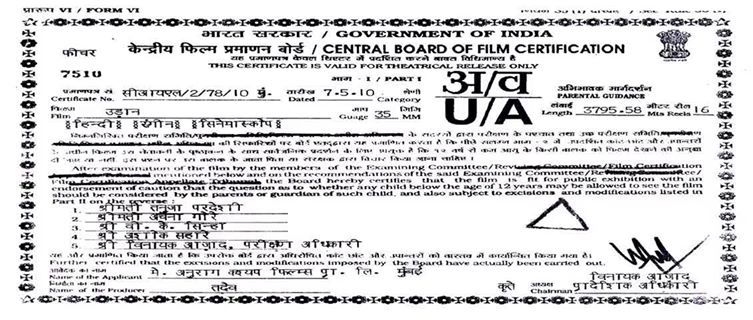 प्रारूप VI / FORM VI
भारत सरकार / GOVERNMENT OF INDIA
फीचर केन्द्रीय फिल्म प्रमाणन बोर्ड / CENTRAL BOARD OF FILM CERTIFICATION
यह प्रमाणपत्र केवल थिएटर में प्रदर्शित करने बाबत विधिमान्य है
THIS CERTIFICATE IS VALID FOR THEATRICAL RELEASE ONLY
7510 भाग - I / PART I
प्रमाणपत्र सं. सीआयएल/2/78/10 मुं. तारीख 7-5-10. श्रेणी अ/व अभिभावक मार्गदर्शन
Certificate No. Dated Category U/A PARENTAL GUIDANCE
फिल्म उड़ान माप 35 मिमि लंबाई 3795.58 मीटर रील 16
Film Guage MM Length Mts Reels
हिन्दी रंगीन सिनेमास्कोप
After examination of the film by the members of the Examining Committee/
mentioned below and on the recommendations of the said Examining Committee/
the Board hereby certifies that the film is fit for public exhibition with an
endorsement of caution that the question as to whether any child below the age of 12 years may be allowed to see the film
should be considered by the parents or guardian of such child, and also subject to excisions and modifications listed in
Part II on the reverse :
1. श्रीमती तनुजा परदेशी
2. श्रीमती अर्चना गोरे
3. श्री वी. के. सिन्हा
4. श्री अशोक सहारे
5. श्री विनायक आज़ाद, परीक्षण अधिकारी
Further certified that the excisions and modifications imposed by the Board have actually been carried out.
आवेदक का नाम मे. अनुराग कश्यप फिल्म्स प्रा. लि. मुंबई विनायक आज़ाद
Name of the Applicant
Name of the Producer तदेव कृते अध्यक्ष प्रादेशिक अधिकारी
Chairman